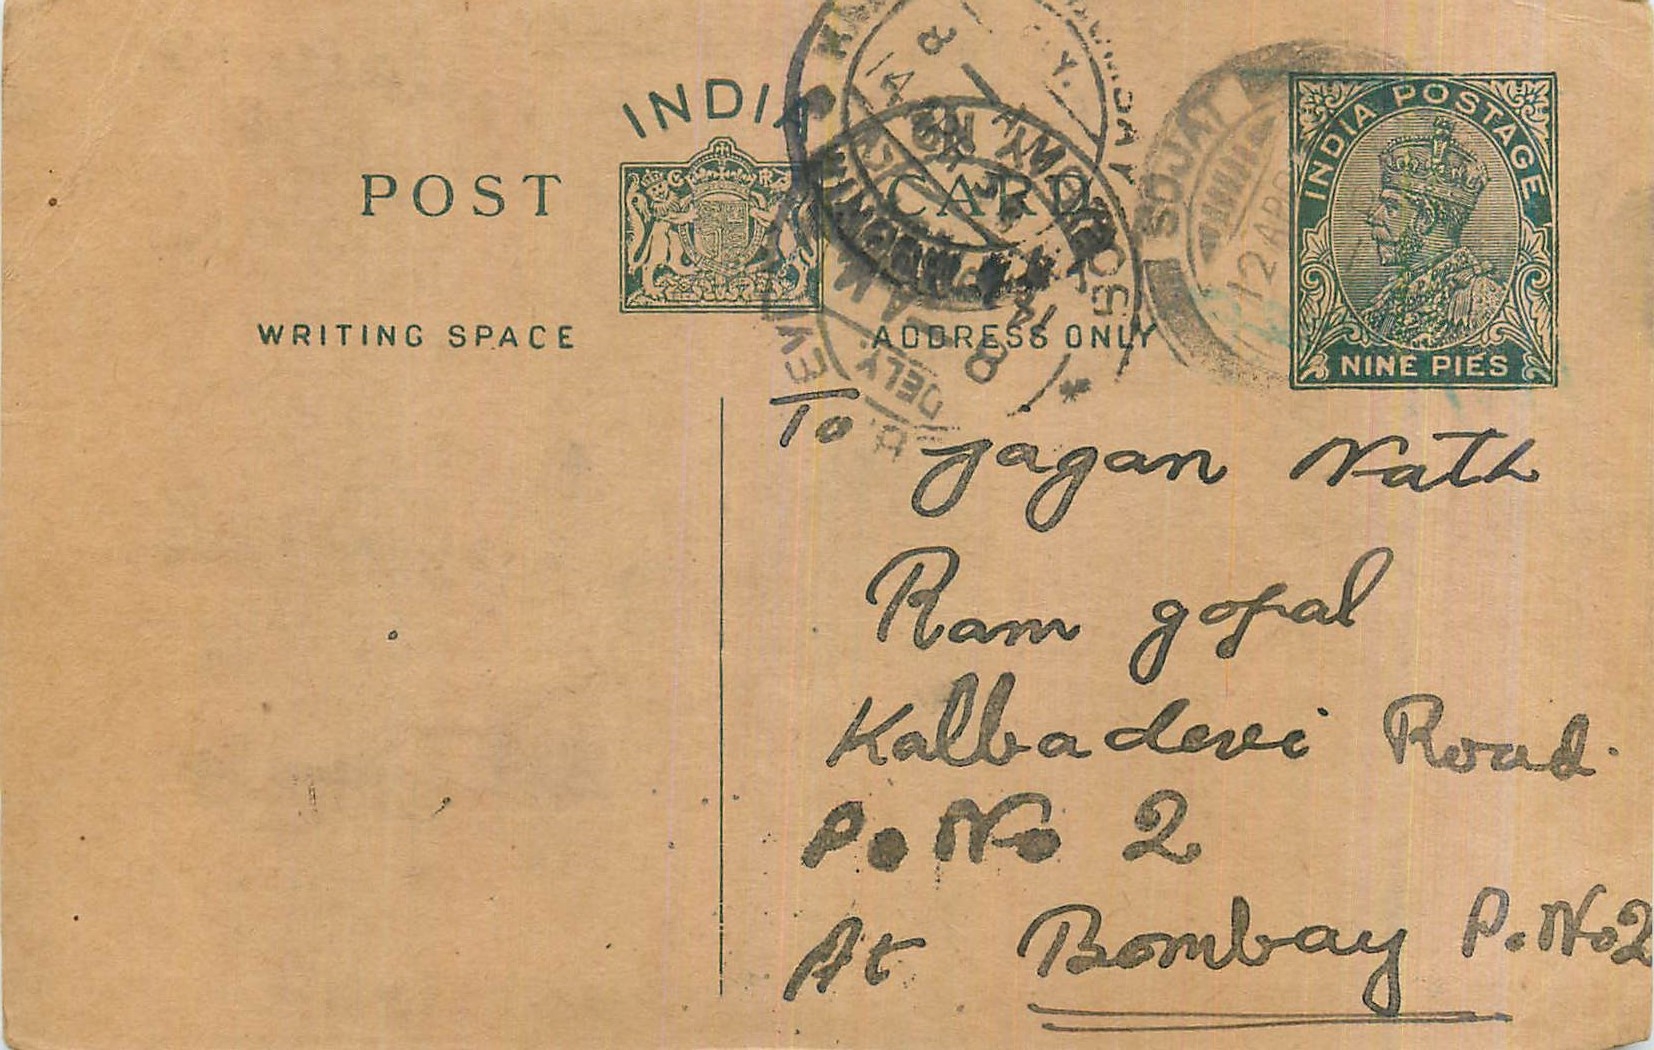 INDIA
POST CARD
WRITING SPACE
ADDRESS ONLY
INDIA POSTAGE
NINE PIES
SOJAT
12 APR
8
14
DELY.
8
To
Jagan Nath
Ram gopal
Kalbadevi Road.
Po No 2
At Bombay P.No2